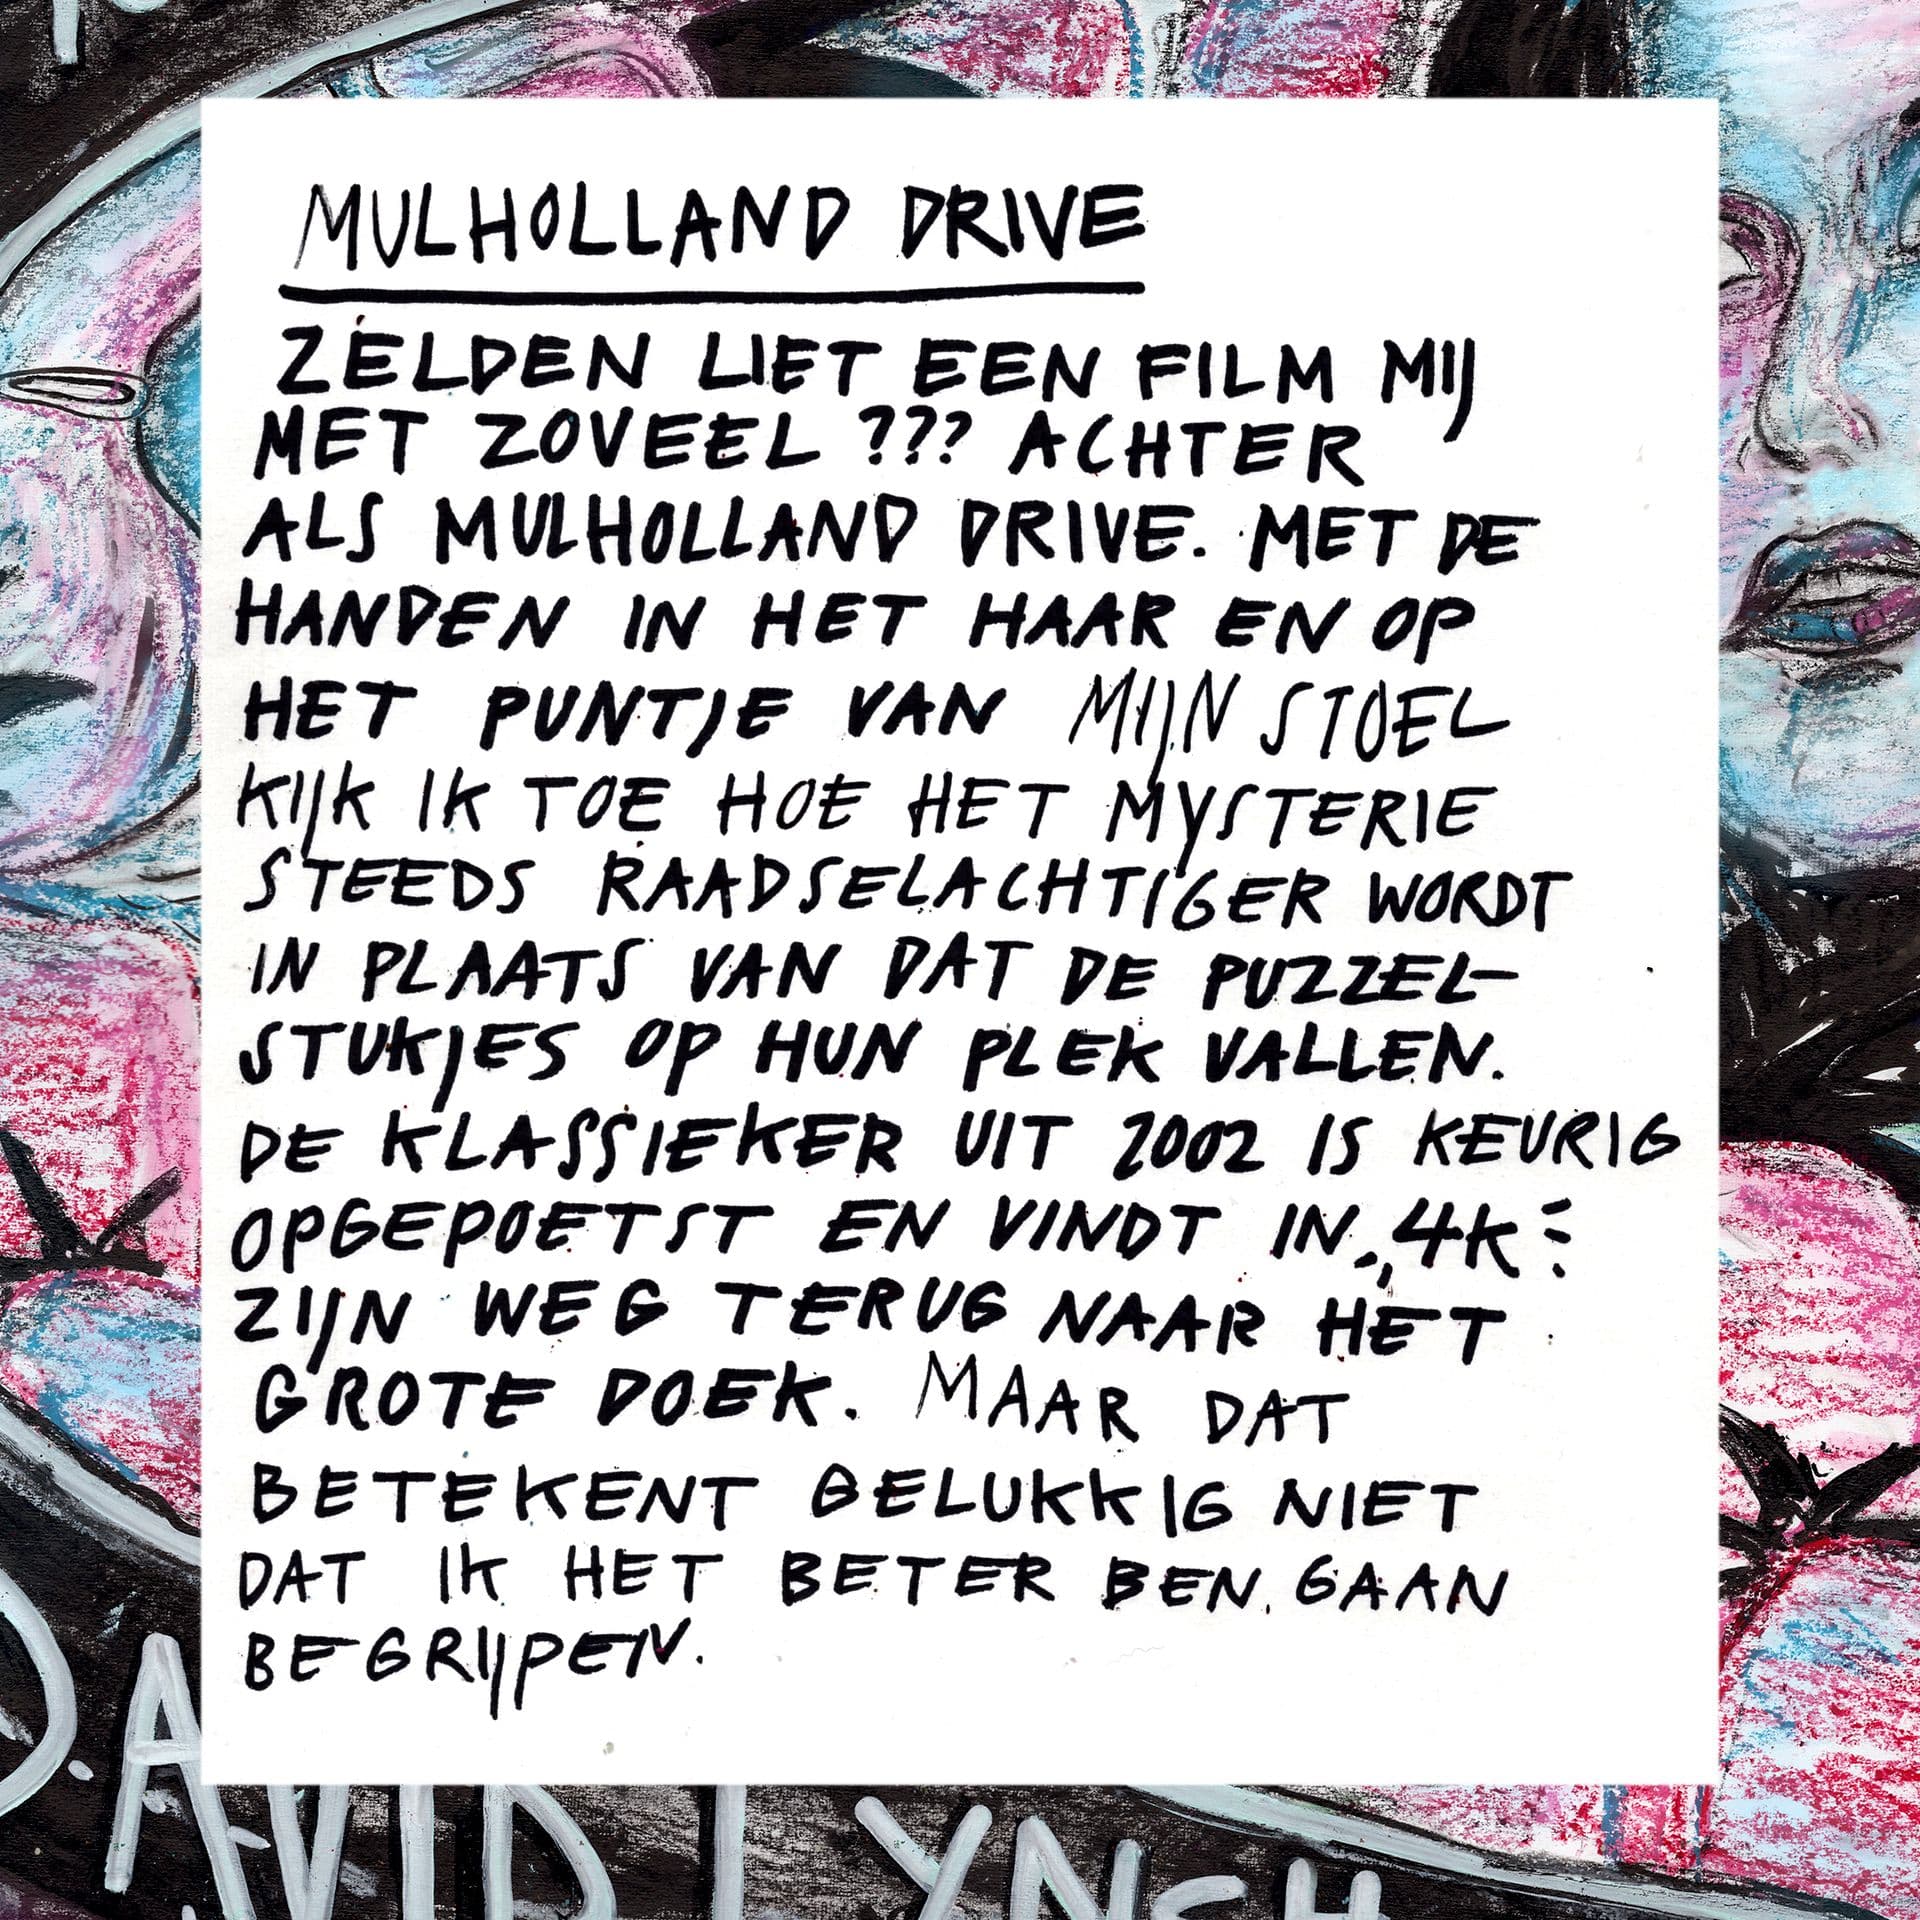 MULHOLLAND DRIVE
ZELDEN LIET EEN FILM MIJ
MET ZOVEEL ??? ACHTER
ALS MULHOLLAND DRIVE. MET DE
HANDEN IN HET HAAR EN OP
HET PUNTJE VAN MIJN STOEL
KIJK IK TOE HOE HET MYSTERIE
STEEDS RAADSELACHTIGER WORDT
IN PLAATS VAN DAT DE PUZZEL-
STUKJES OP HUN PLEK VALLEN.
DE KLASSIEKER UIT 2002 IS KEURIG
OPGEPOETST EN VINDT IN 4K
ZIJN WEG TERUG NAAR HET
GROTE DOEK. MAAR DAT
BETEKENT GELUKKIG NIET
DAT IK HET BETER BEN GAAN
BEGRIJPEN.
DAVID LYNCH